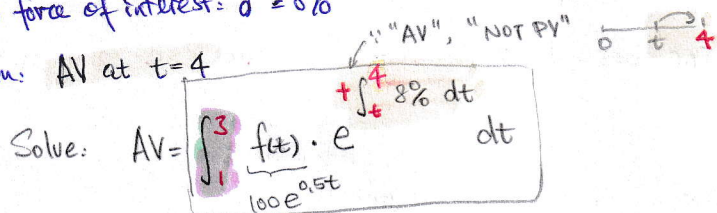 force of interest: δ = 8%
∵ "AV", "NOT PV"
0 t 4
AV at t=4
Solve: AV = ∫₁³ f(t) · e^(+∫ₜ⁴ 8% dt) dt
100e^(0.5t)